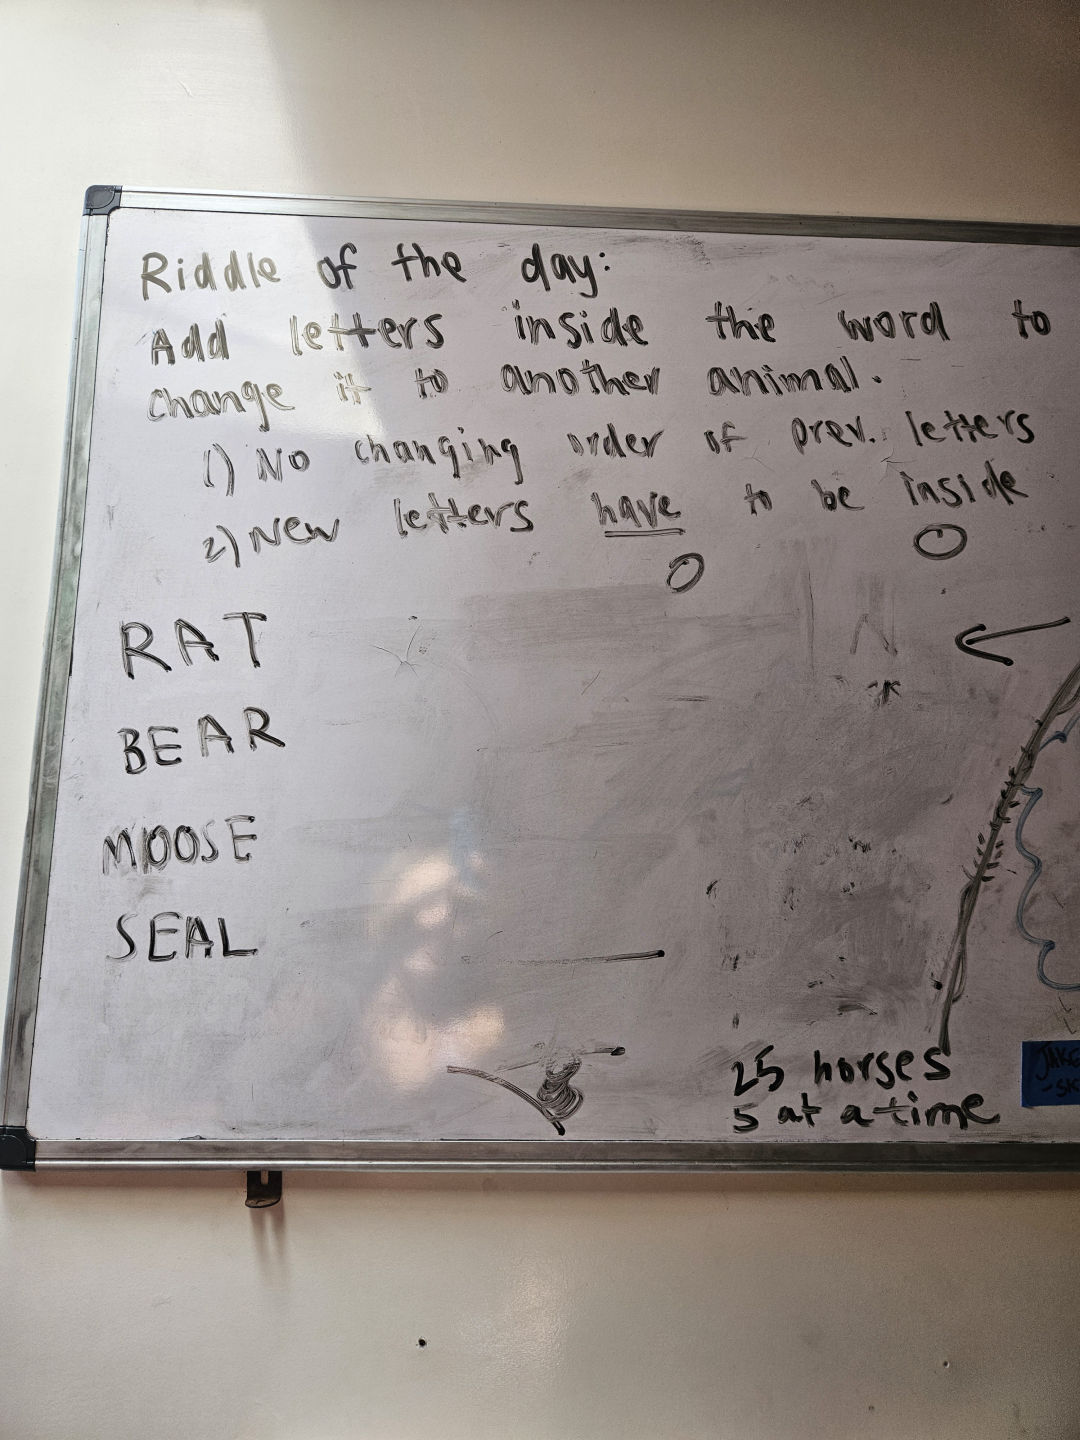 Riddle of the day:
Add letters inside the word to
change it to another animal.
1) No changing order of prev. letters
2) New letters have to be inside
RAT
BEAR
MOOSE
SEAL
25 horses
5 at a time